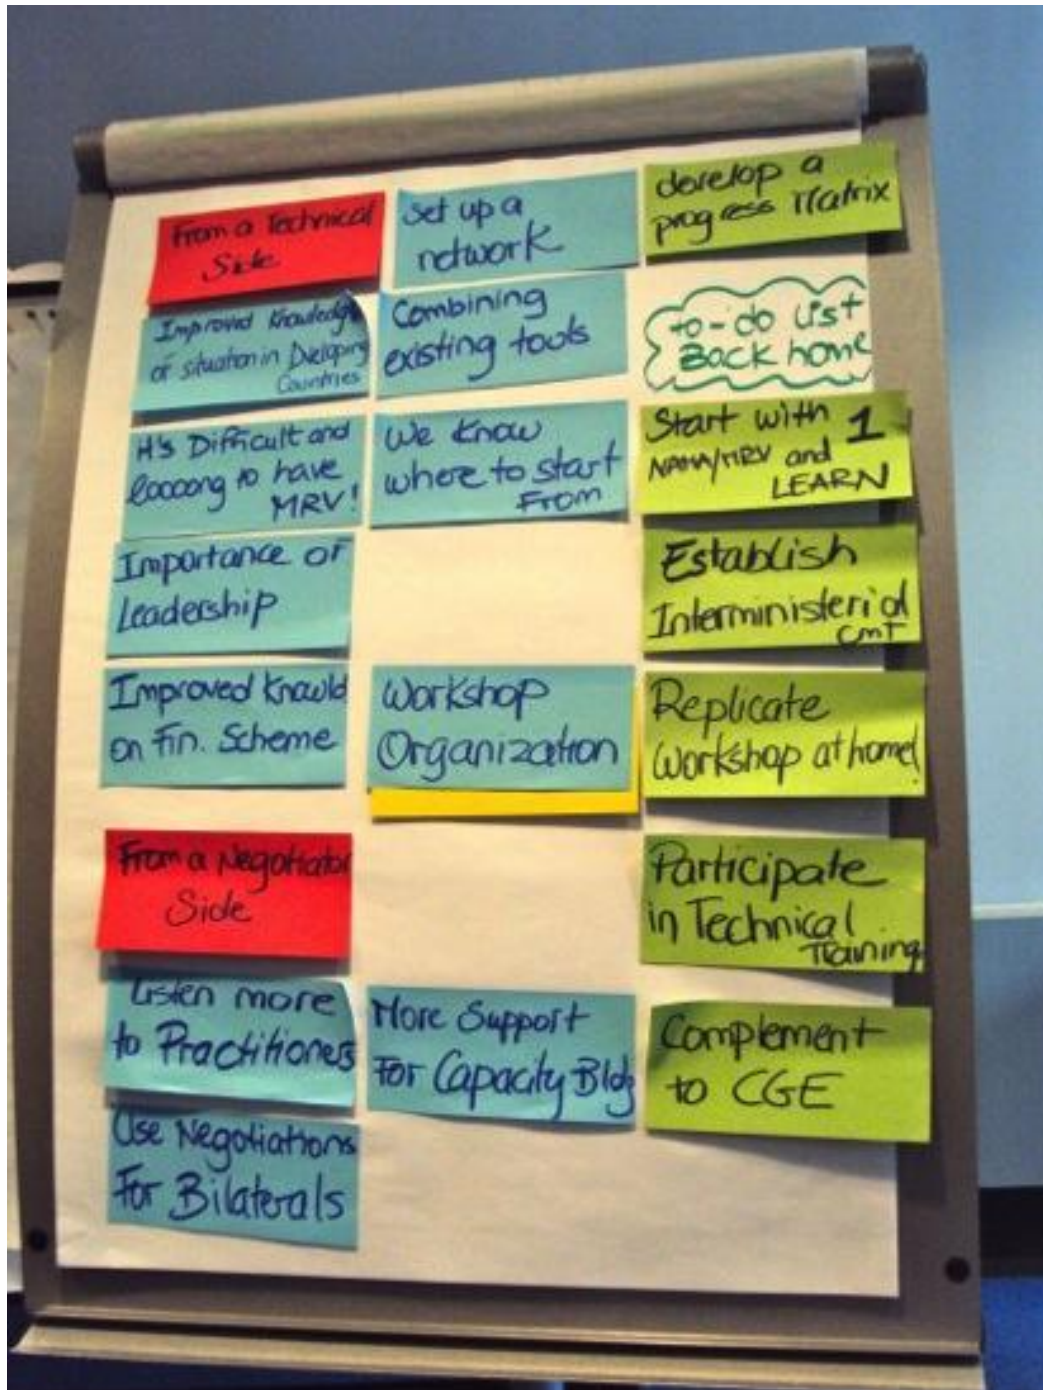 From a Technical
Side
Improved Knowledge
of situation in Developing
Countries
It's Difficult and
loooong to have
MRV!
Importance of
Leadership
Improved Knowld
on Fin. Scheme
From a Negotiator
Side
Listen more
to Practitioners
Use Negotiations
For Bilaterals
Set up a
network
Combining
existing tools
We Know
where to start
From
Workshop
Organization
More Support
For Capacity Bldg
develop a
progress Matrix
to-do list
Back home
Start with 1
NAMA/MRV and
LEARN
Establish
Interministerial
CMT
Replicate
Workshop at home!
Participate
in Technical
Training
Complement
to CGE